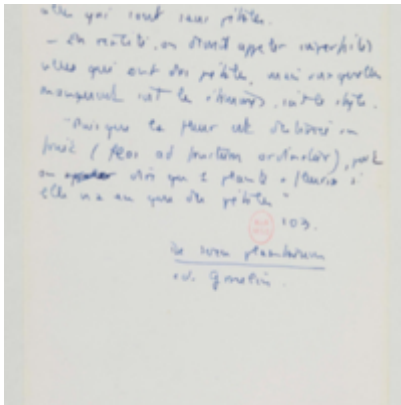 elles qui sont sans pétales.
– En réalité, on devrait appeler imparfaites
celles qui ont des pétales, mais auxquelles
manquent soit les étamines, soit le style.
"Puisque la fleur est destinée au
fruit (flos ad fructum ordinatur), peut
on dire que la plante a fleuri si
elle n'a eu que des pétales"
103.
De sexu plantarum
ed. Gmelin.